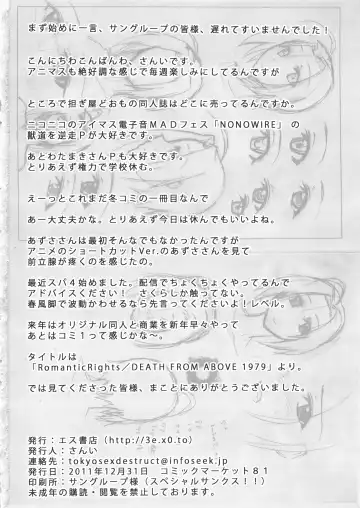 まず始めに一言、サングループの皆様、遅れてすいませんでした！
こんにちわこんばんわ、さんいです。
アニマスも絶好調な感じで毎週楽しみにしてるんですが
ところで担ぎ屋どおもの同人誌はどこに売ってるんですか。
ニコニコのアイマス電子音ＭＡＤフェス「NONOWIRE」 の
獣道を逆走Ｐが大好きです。
あとわたまきさんＰも大好きです。
とりあえず権力で学校休む。
えーっとこれまだ冬コミの一冊目なんで
あー大丈夫かな。とりあえず今日は休んでもいいよね。
あずささんは最初そんなでもなかったんですが
アニメのショートカットVer.のあずささんを見て
前立腺が疼くのを感じたの。
最近スパ４始めました。配信でちょくちょくやってるんで
アドバイスください！ さくらしか触ってない。
春風脚で波動かわせるなら先言ってくださいよ！レベル。
来年はオリジナル同人と商業を新年早々やって
あとはコミ１って感じかな～。
タイトルは
「RomanticRights／DEATH FROM ABOVE 1979」より。
では見てくださった皆様、まことにありがとうございました。
発行：エス書店（http://3e.x0.to）
発行人：さんい
連絡先：tokyosexdestruct@infoseek.jp
発行日：2011年12月31日 コミックマーケット８１
印刷所：サングループ様（スペシャルサンクス！！）
未成年の購読・閲覧を禁止しております。